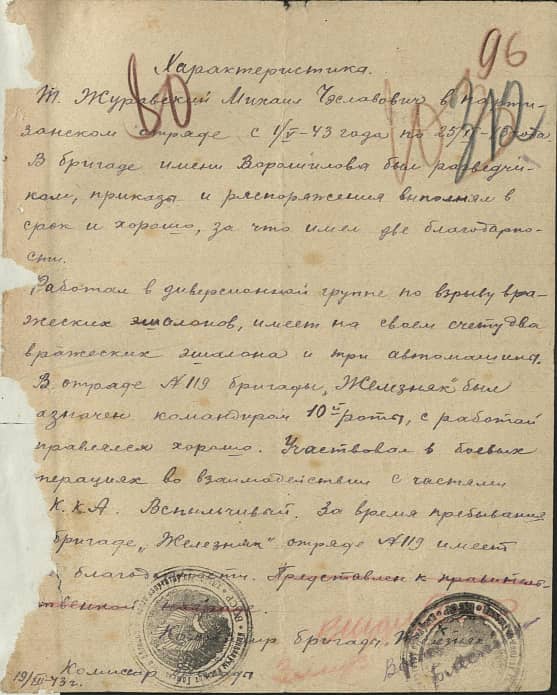 96
80
Характеристика.
Т. Журавский Михаил Чеславович в парти-
занском отряде с 1/V-43 года по
В бригаде имени Ворошилова был разведчи-
ком, приказы и распоряжения выполнял в
срок и хорошо, за что имел две благодарно-
сти.
Работал в диверсионной группе по взрыву вра-
жеских эшалонов, имеет на своем счету два
вражеских эшалона и три автомашины.
В отряде №119 бригады „Железняк" был
азначен командиром 10й роты, с работой
правлялся хорошо. Участвовал в боевых
перациях во взаимодействии с частями
К.К.А. Вспыльчивый. За время пребывания
бригаде „Железняк" отряде №119 имеет
благодарности. Представлен к правитель
ственной награде.
бригады
Комиссар
19/XII-43г.